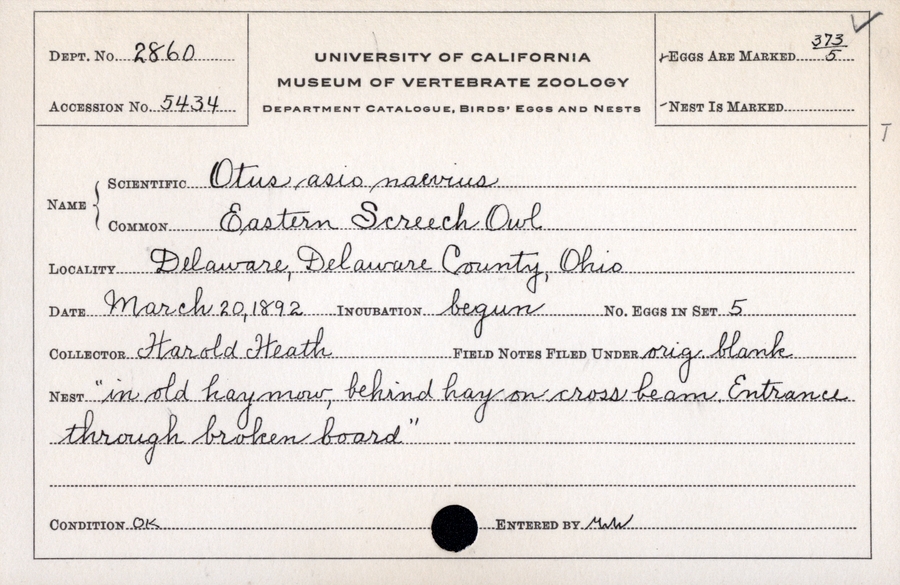 DEPT. No. 2860
ACCESSION No. 5434
UNIVERSITY OF CALIFORNIA
MUSEUM OF VERTEBRATE ZOOLOGY
DEPARTMENT CATALOGUE, BIRDS' EGGS AND NESTS
EGGS ARE MARKED 373/5
NEST IS MARKED
T
NAME
SCIENTIFIC Otus asio naevius
COMMON Eastern Screech Owl
LOCALITY Delaware, Delaware County, Ohio
DATE March 20, 1892 INCUBATION begun NO. EGGS IN SET 5
COLLECTOR Harold Heath FIELD NOTES FILED UNDER orig. blank
NEST "in old haymow, behind hay on cross beam. Entrance
through broken board"
CONDITION OK ENTERED BY